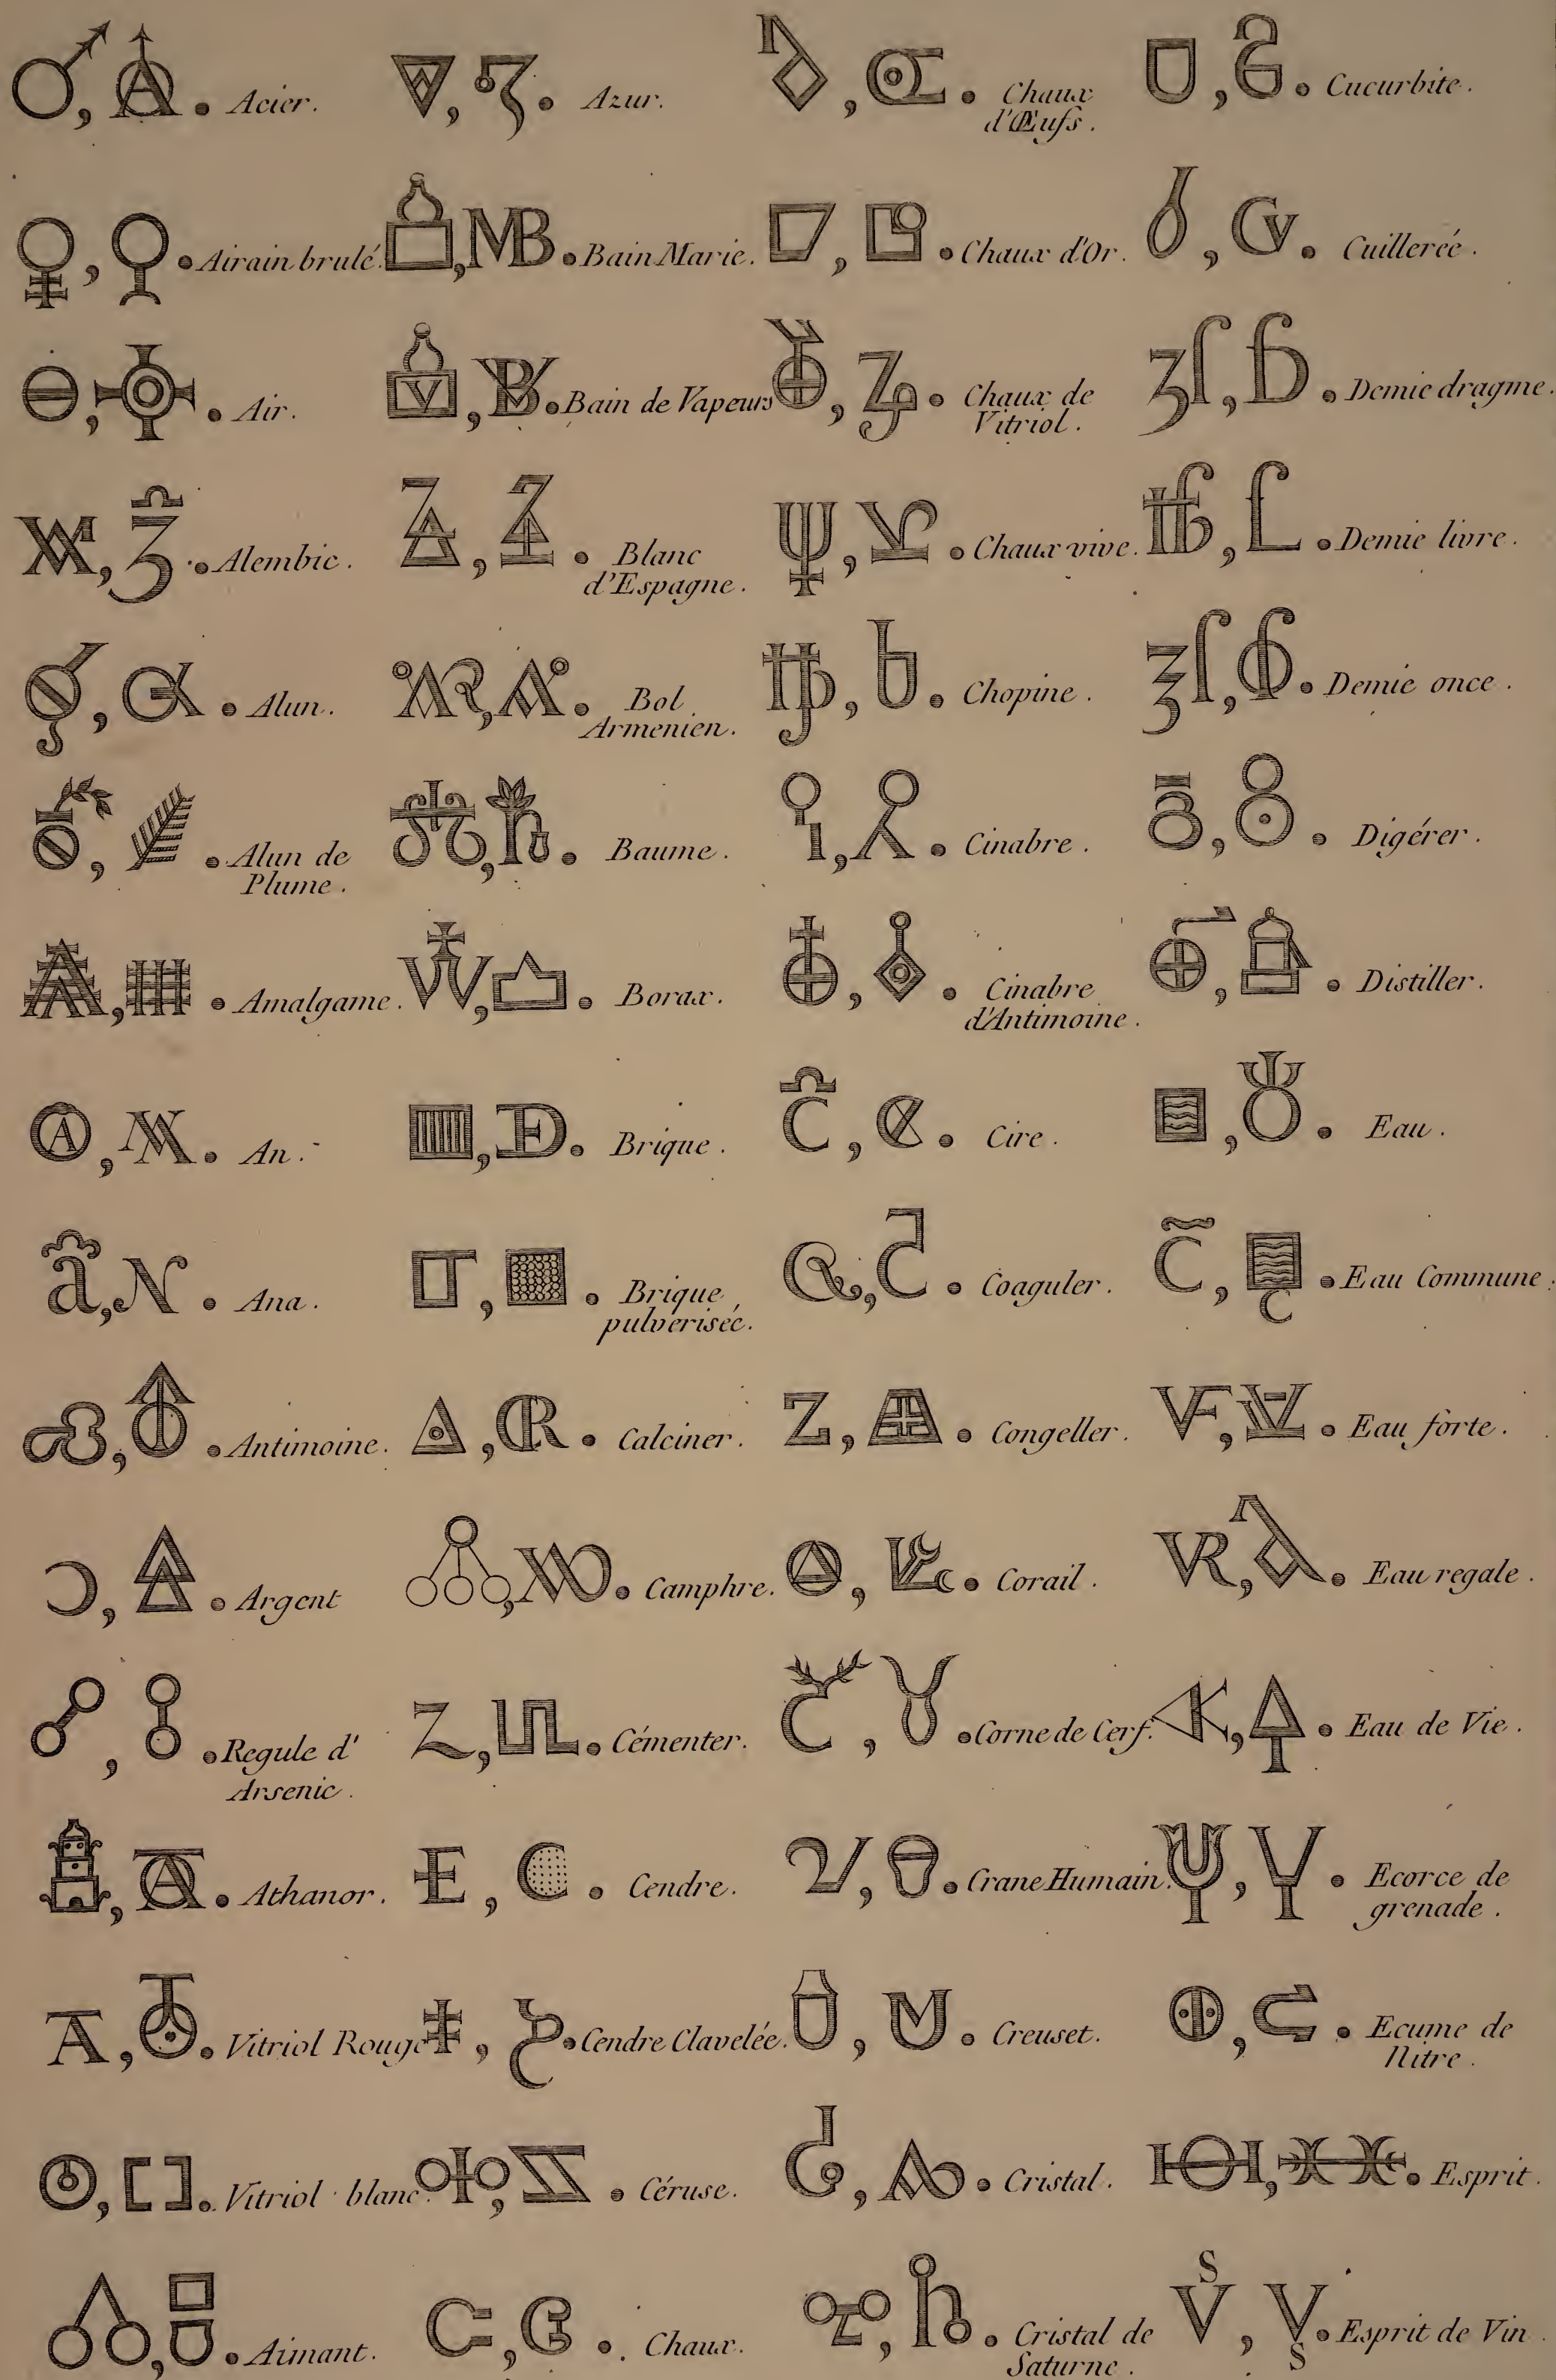 Acier.
Airain brulé.
Air.
Alembic.
Alun.
Alun de
Plume.
Amalgame.
An.
Ana.
Antimoine.
Argent
Regule d'
Arsenic.
Athanor.
Vitriol Rouge
Vitriol blanc.
Aimant.
Azur.
Bain Marie.
Bain de Vapeurs
Blanc
d'Espagne.
Bol
Armenien.
Baume.
Borax.
Brique.
Brique
pulverisée.
Calciner.
Camphre.
Cémenter.
Cendre.
Cendre Clavelée.
Céruse.
Chaux.
Chaux
d'Œufs.
Chaux d'Or.
Chaux de
Vitriol.
Chaux vive.
Chopine.
Cinabre.
Cinabre
d'Antimoine.
Cire.
Coaguler.
Congeller.
Corail.
Corne de Cerf.
Crane Humain.
Creuset.
Cristal.
Cristal de
Saturne.
Cucurbite.
Cuillereé.
Demie dragme.
Demie livre.
Demie once.
Digérer.
Distiller.
Eau.
Eau Commune.
Eau forte.
Eau regale.
Eau de Vie.
Ecorce de
grenade.
Ecume de
Nitre.
Esprit.
Esprit de Vin